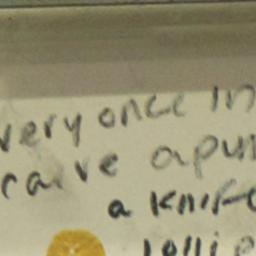 very once in
carve a pun
a knife
lolli